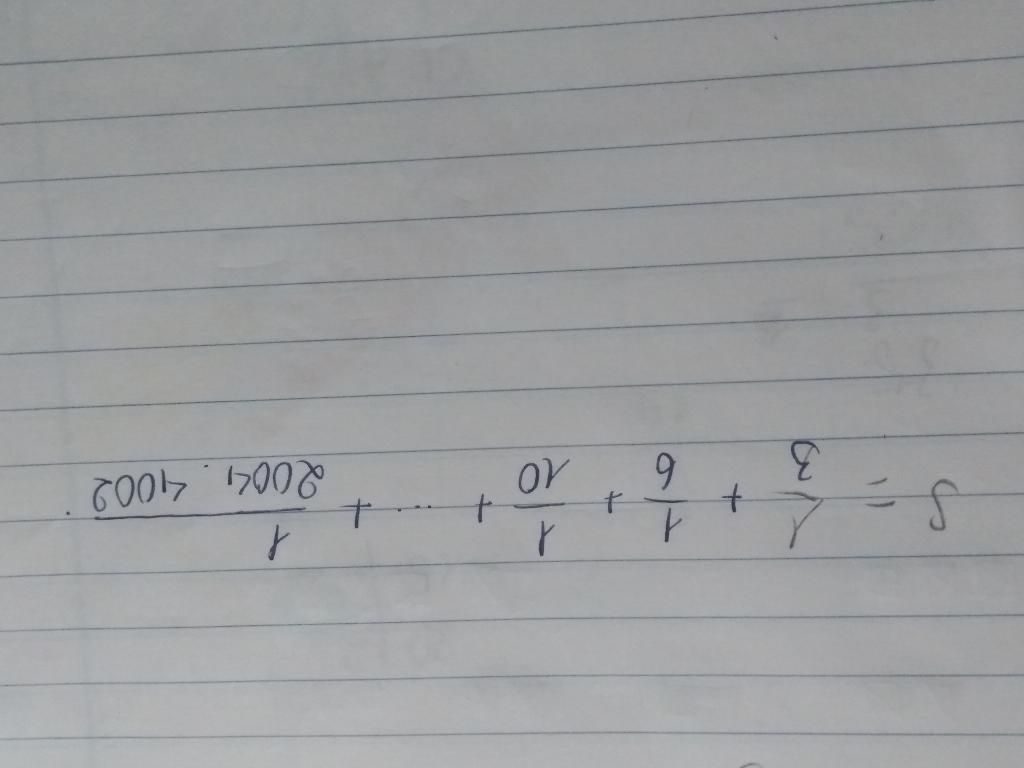 S = 1/3 + 1/6 + 1/10 + ... + 1/(2004 . 4002) .